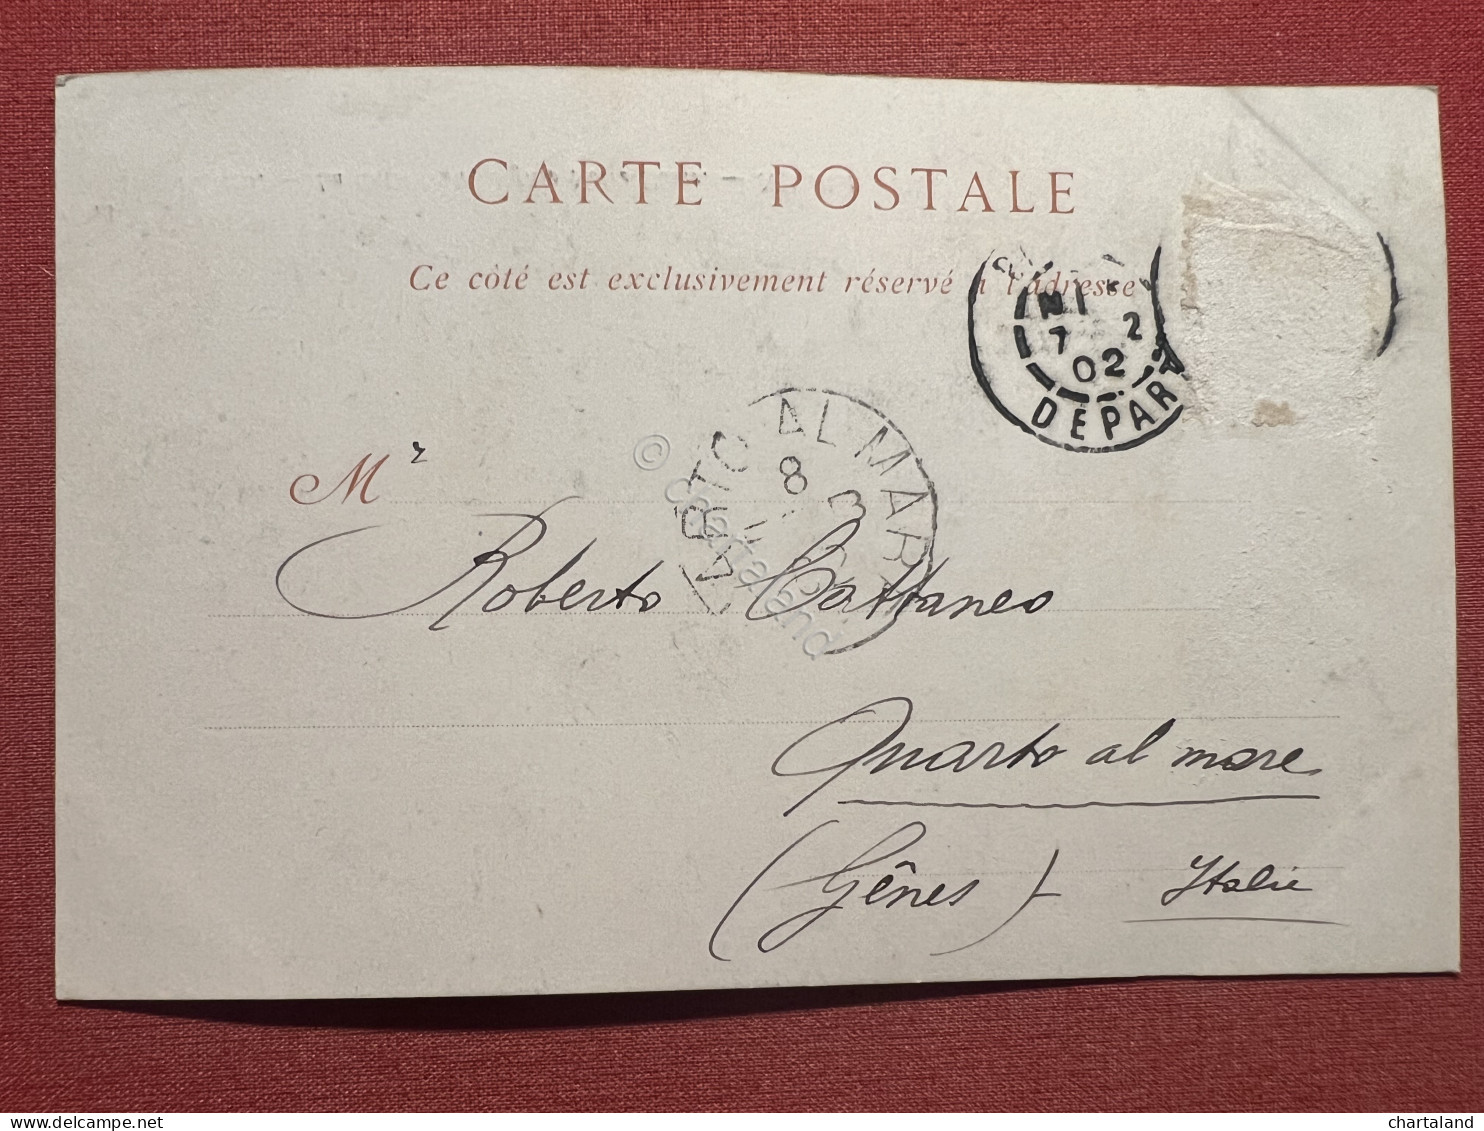 CARTE POSTALE
Ce côté est exclusivement réservé à l'adresse
7 2
02
DEPART
ARTO AL MARE
8
Mr
Roberto Cattaneo
Quarto al mare
(Gênes) Italie
© Chartaland
delcampe.net
chartaland